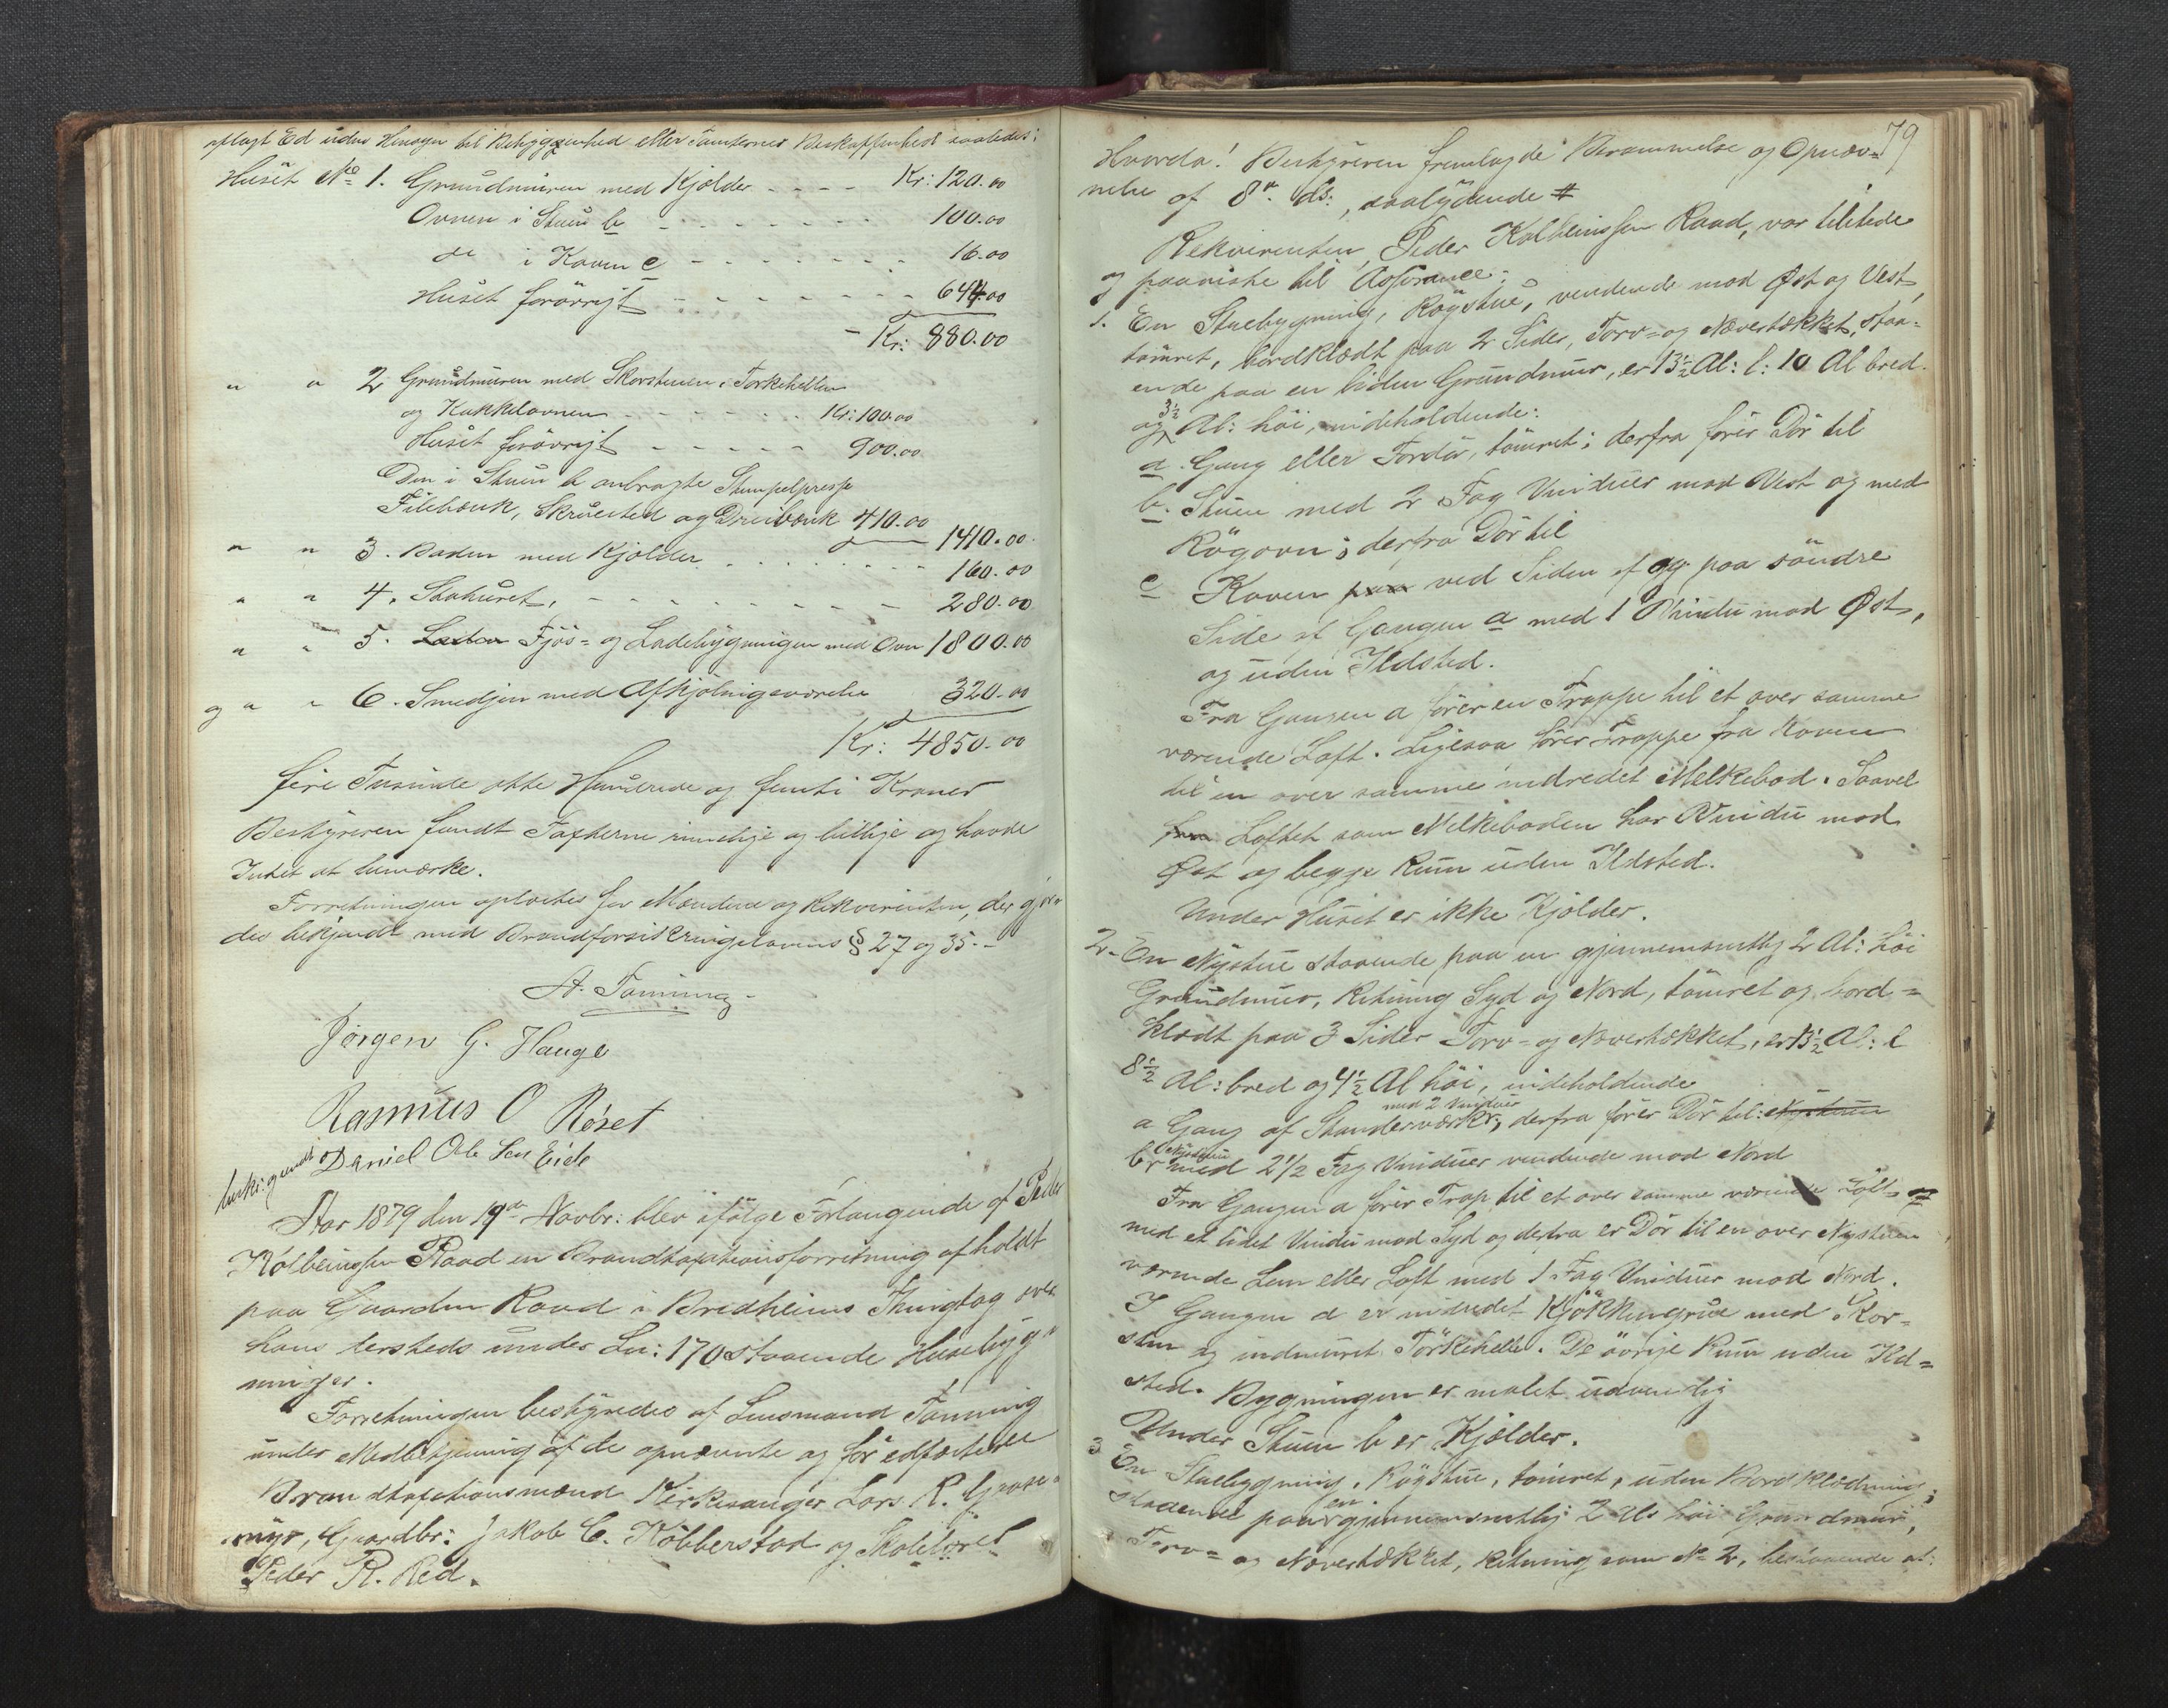 aflagt Ed uden Hensyn til Beliggenhed eller Tomternes Beskaffenhed saaledes:
Huset No 1. Grundmuren med Kjelder - - - - Kr: 120.00
Ovnen i Stuen b - - - - - - 100.00
do i Koven c - - - - - - - 16.00
Huset forøvrigt - - - - - - - 644.00
- Kr: 880.00
" " 2 Grundmuren med Skorstenen, Tørkehellen
og Kakkelovnen - - - - - - Kr: 100.00
Huset forøvrigt - - - - - 900.00
Den i Stuen b anbragte Stempelpresse
Filebænk, Skruested og Dreibænk 410.00
1410.00
" " 3. Boden med Kjelder - - - - - - - 160.00
" " 4. Staburet, - - - - - - - - 280.00
" " 5. Laden Fjøs- og Ladebygningen med Ovn 1800.00
og " " 6. Smedjen med Afkjølingsværelse 320.00
Kr: 4850.00
fire Tusinde otte Hundrede og femti Kroner
Bestyreren fandt Taxterne rimelige og billige og havde
Intet at bemærke.
Forretningen oplæstes for Mændene og Rekvirenten, der gjor-
des bekjendt med Brandforsikringslovens § 27 og 35.-
A. Tønning
Jørgen G. Hauge
Rasmus O Røset
Daniel Ole Sen Eide
Aar 1879 den 19de Novbr: blev ifølge Forlangende af Peder
Kolbeinssen Raad en Brandtaxationsforretning afholdt
paa Gaarden Raad i Bredheims Thinglag over
hans tersteds under Ln: 170 staaende Husebyg-
ninger.
Forretningen bestyredes af Lensmand Tønning
under Medbetjening af de opnævnte og før edfæstede
Brandtaxationsmænd Kirkesanger Lars R.
myr, Gaardbr: Jakob C. Kobberstad og Skolelærer
Peder R. Red.
79
Hvorda! Bestyreren fremlagde Berammelse og Opnæv-
nelse af 8de ds:, saalydende #
Rekvirenten, Peder Kolbeinssen Raad, var tilstede
og paaviste til Assurance:
1. En Stuebygning, Røgstue, vendende mod Øst og Vest,
tømret, bordklædt paa 2 Sider, Torv- og Nævertækket, staa-
ende paa en liden Grundmur, er 13½ Al: l: 10 Al bred
og 3½ Al: høi, indeholdende:
a. Gang eller Fordør, tømret; derfra fører Dør til
b. Stuen med 2 Fag Vinduer mod Vest og med
Røgovn; derfra Dør til
c Koven paa ved Siden af og paa søndre
Side af Gangen a med 1 Vindu mod Øst,
og uden Ildsted.
Fra Gangen a fører en Trappe til et over samme
værende Loft. Ligesaa fører Trappe fra Koven
til en over samme indredet Melkebod. Saavel
fra Loftet som Melkeboden har Vindu mod
Øst og begge Rum uden Ildsted.
Under Huset er ikke Kjelder.
2. En Nystue staaende paa en gjennemsnitlig 2 Al: høi
Grundmur, Retning Syd og Nord, tømret og bord-
klædt paa 3 Sider Torv- og Nævertækket, er 13½ Al: l
8½ Al: bred og 4½ Al høi, indeholdende
a Gang af Stenderværk, med 2 Vinduer derfra fører Dør til: Nystuen
b. Nystuen med 2½ Fag Vinduer vendende mod Nord
Fra Gangen a fører Trap til et over samme værende Loft
med et lidet Vindu mod Syd og derfra er Dør til en over Nystuen
værende Lem eller Loft med 1 Fag Vinduer mod Nord.
I Gangen a er indredet Kjøkkengrue med Skor-
sten og indmuret Tørkehelle. De øvrige Rum uden Ild-
sted. Bygningen er malet udvendig
Under Stuen b er Kjelder.
3 En Stuebygning, Røgstue, tømret, uden Bordklædning;
staaende paa en gjennemsnitlig 2 Al: høi Grundmur,
Torv- og Nævertækket, Retning som No 2, bestaaende af: